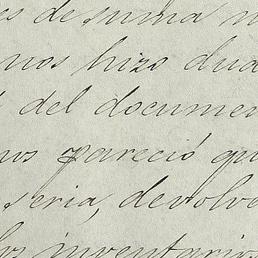 es de suma n
nos hizo dud
del documen
nos pareció qu
seria, devolve
los inventarios